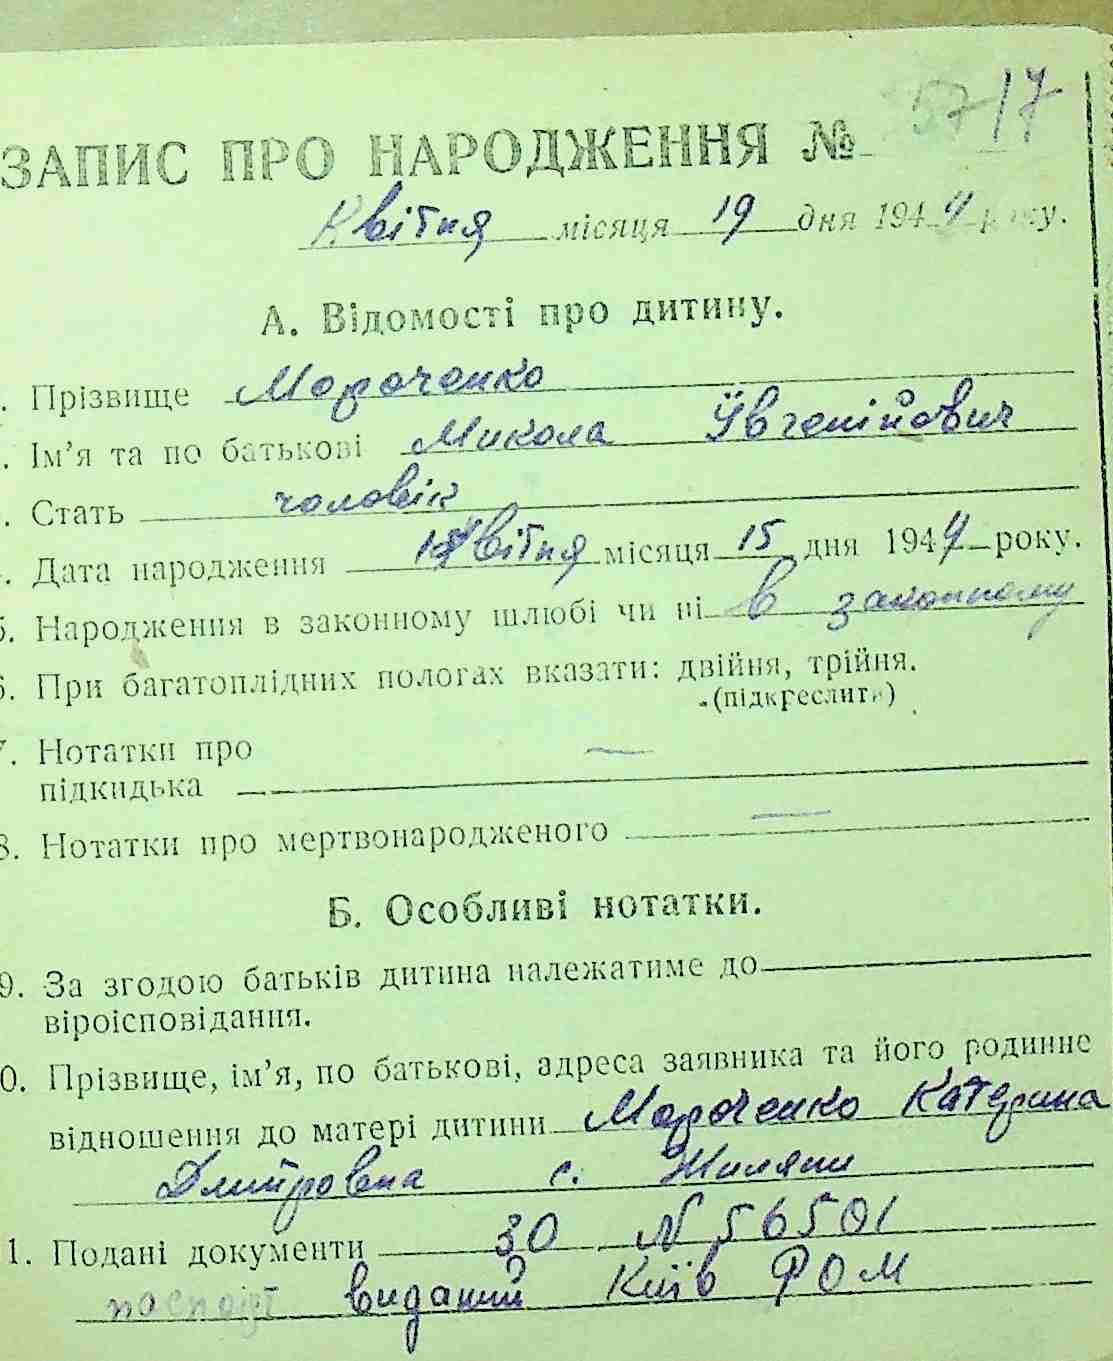 ЗАПИС ПРО НАРОДЖЕННЯ № 57 17
Квітня місяця 19 дня 1944 року.
А. Відомості про дитину.
. Прізвище Мороченко
. Ім’я та по батькові Микола Ївгенійович
. Стать чоловік
. Дата народження квітня місяця 15 дня 1944 року.
5. Народження в законному шлюбі чи ні в законному
6. При багатоплідних пологах вказати: двійня, трійня.
(підкреслити)
7. Нотатки про —
підкидька
8. Нотатки про мертвонародженого —
Б. Особливі нотатки.
9. За згодою батьків дитина належатиме до
віроісповідання.
0. Прізвище, ім’я, по батькові, адреса заявника та його родинне
відношення до матері дитини Мороченко Катерина
Дмитровна с. Жиляни
1. Подані документи 30 N 56501
паспорт виданий Київ РОМ